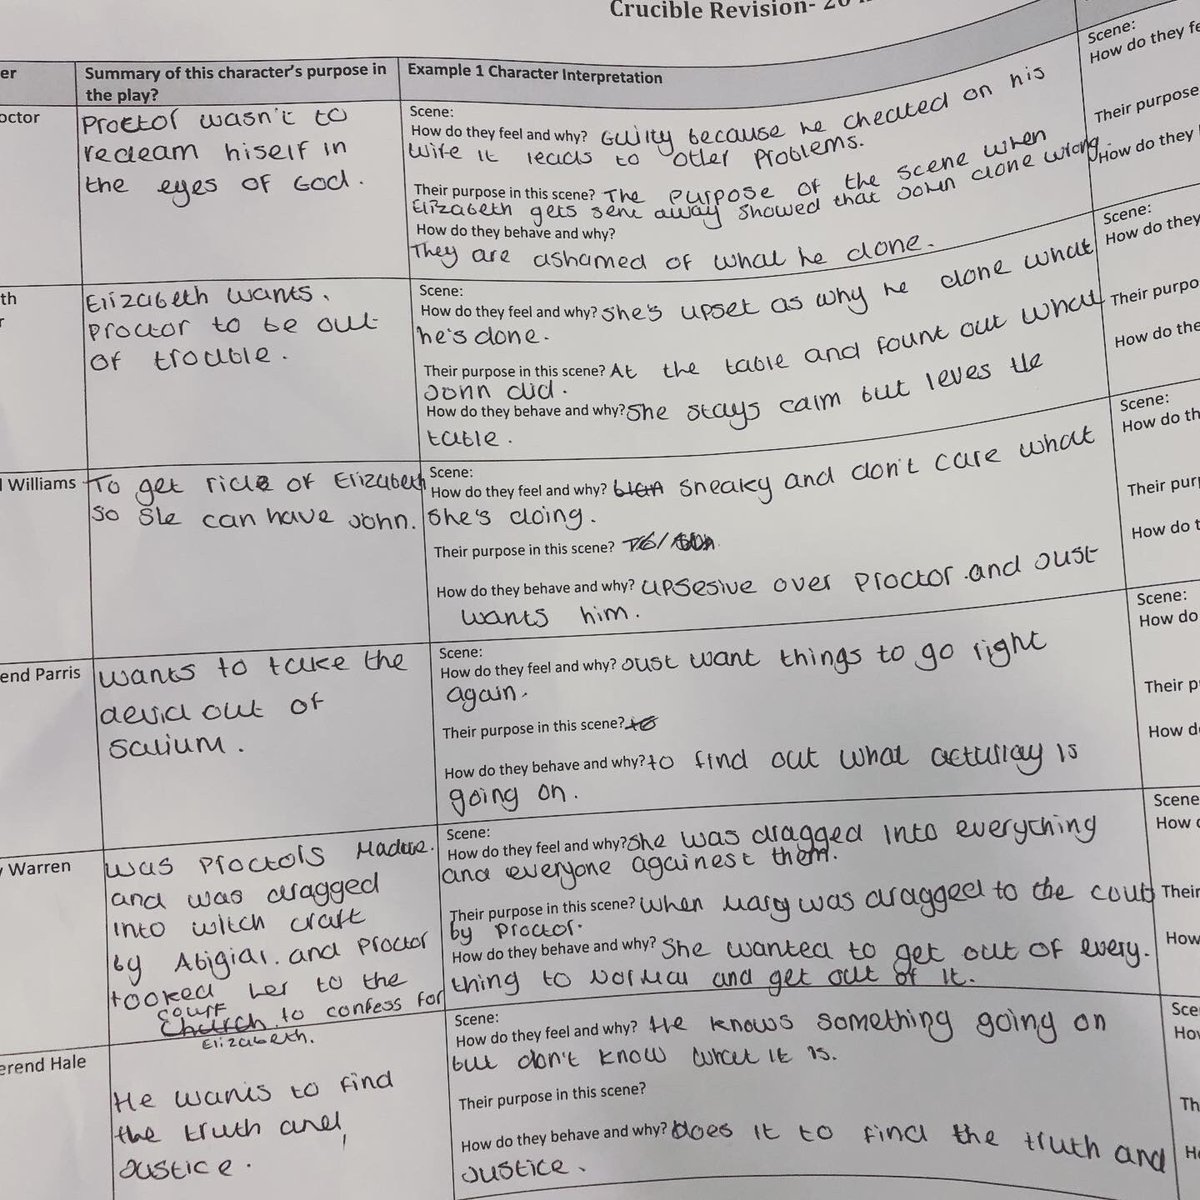 Crucible Revision- 20
er
Summary of this character's purpose in
the play?
Example 1 Character Interpretation
octor
Proctor wasn't to
redeam hiself in
the eyes of God.
Scene:
How do they feel and why? Guilty because he cheated on his
wife it leads to other problems.
Their purpose in this scene? The purpose of the scene when
Elizabeth gets sent away showed that John done wrong.
How do they behave and why?
They are ashamed of what he done.
Scene:
How do they fe
Their purpose
How do they
th
r
Elizabeth wants.
proctor to be out
of trouble.
Scene:
How do they feel and why? she's upset as why he done what
he's done.
Their purpose in this scene? At the table and fount out what
John did.
How do they behave and why? She stays calm but leves the
table.
Scene:
How do they
Their purpo
How do the
l Williams
To get ride of Elizabeth
so she can have John.
Scene:
How do they feel and why? sneaky and don't care what
she's doing.
Their purpose in this scene?
How do they behave and why? upsesive over proctor.and Just
wants him.
Scene:
How do th
Their pur
How do t
end Parris
wants to take the
devid out of
salium.
Scene:
How do they feel and why? Just want things to go right
again.
Their purpose in this scene? to
How do they behave and why? to find out what acturlay is
going on.
Scene:
How do
Their p
How d
y Warren
was Proctors
and was dragged
into witch craft
by Abigial. and proctor
tooked her to the
court
Church. to confess for
Elizabeth.
Scene:
How do they feel and why? she was dragged into everything
and everyone againest them.
Their purpose in this scene? when Mary was dragged to the court
by proctor.
How do they behave and why? She wanted to get out of every.
thing to normal and get out of it.
Scene
How d
Their
How
erend Hale
He wants to find
the truth and,
Justice.
Scene:
How do they feel and why? He knows something going on
but don't know what it is.
Their purpose in this scene?
How do they behave and why? Does it to find the truth and
Justice.
Sce
Ho
Th
H